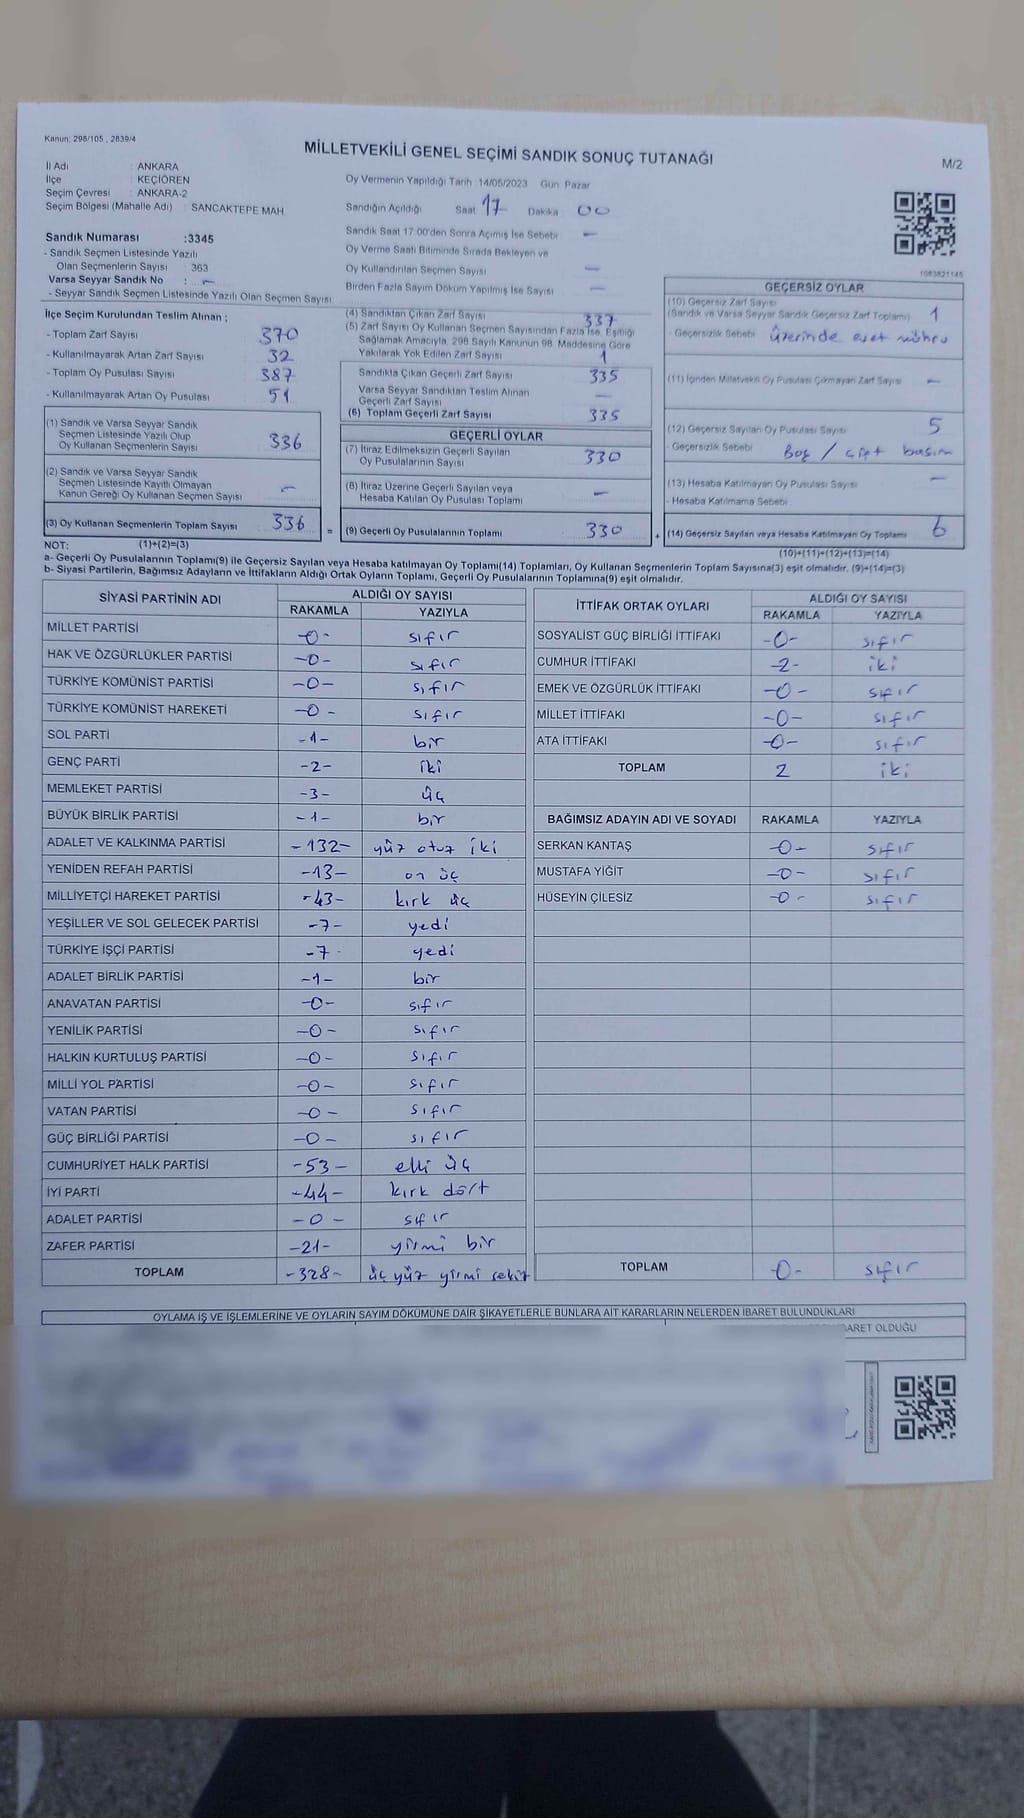 Kanun: 298/105 , 2839/4
MİLLETVEKİLİ GENEL SEÇİMİ SANDIK SONUÇ TUTANAĞI
M/2
İl Adı : ANKARA
İlçe : KEÇİÖREN
Seçim Çevresi : ANKARA-2
Seçim Bölgesi (Mahalle Adı) : SANCAKTEPE MAH.
Sandık Numarası :3345
- Sandık Seçmen Listesinde Yazılı
Olan Seçmenlerin Sayısı : 363
Varsa Seyyar Sandık No : —
- Seyyar Sandık Seçmen Listesinde Yazılı Olan Seçmen Sayısı
Oy Vermenin Yapıldığı Tarih 14/05/2023 Gün Pazar
Sandığın Açıldığı Saat 17 Dakika 00
Sandık Saat 17:00'den Sonra Açılmış İse Sebebi —
Oy Verme Saati Bitiminde Sırada Bekleyen ve
Oy Kullandırılan Seçmen Sayısı —
Birden Fazla Sayım Döküm Yapılmış İse Sayısı —
1083821145
İlçe Seçim Kurulundan Teslim Alınan ;
- Toplam Zarf Sayısı 370
- Kullanılmayarak Artan Zarf Sayısı 32
- Toplam Oy Pusulası Sayısı 387
- Kullanılmayarak Artan Oy Pusulası 51
(1) Sandık ve Varsa Seyyar Sandık
Seçmen Listesinde Yazılı Olup
Oy Kullanan Seçmenlerin Sayısı 336
(2) Sandık ve Varsa Seyyar Sandık
Seçmen Listesinde Kayıtlı Olmayan
Kanun Gereği Oy Kullanan Seçmen Sayısı —
(3) Oy Kullanan Seçmenlerin Toplam Sayısı 336 =
(4) Sandıktan Çıkan Zarf Sayısı 337
(5) Zarf Sayısı Oy Kullanan Seçmen Sayısından Fazla İse, Eşitliği
Sağlamak Amacıyla, 298 Sayılı Kanunun 98. Maddesine Göre
Yakılarak Yok Edilen Zarf Sayısı 1
Sandıkta Çıkan Geçerli Zarf Sayısı 335
Varsa Seyyar Sandıktan Teslim Alınan
Geçerli Zarf Sayısı —
(6) Toplam Geçerli Zarf Sayısı 335
GEÇERLİ OYLAR
(7) İtiraz Edilmeksizin Geçerli Sayılan
Oy Pusulalarının Sayısı 330
(8) İtiraz Üzerine Geçerli Sayılan veya
Hesaba Katılan Oy Pusulası Toplamı —
(9) Geçerli Oy Pusulalarının Toplamı 330 +
GEÇERSİZ OYLAR
(10) Geçersiz Zarf Sayısı
(Sandık ve Varsa Seyyar Sandık Geçersiz Zarf Toplamı) 1
- Geçersizlik Sebebi üzerinde evet mührü
(11) İçinden Milletvekili Oy Pusulası Çıkmayan Zarf Sayısı —
(12) Geçersiz Sayılan Oy Pusulası Sayısı 5
- Geçersizlik Sebebi Boş / çift basım
(13) Hesaba Katılmayan Oy Pusulası Sayısı —
- Hesaba Katılmama Sebebi
(14) Geçersiz Sayılan veya Hesaba Katılmayan Oy Toplamı 6
NOT: (1)+(2)=(3)
(10)+(11)+(12)+(13)=(14)
a- Geçerli Oy Pusulalarının Toplamı(9) ile Geçersiz Sayılan veya Hesaba katılmayan Oy Toplamı(14) Toplamları, Oy Kullanan Seçmenlerin Toplam Sayısına(3) eşit olmalıdır. (9)+(14)=(3)
b- Siyasi Partilerin, Bağımsız Adayların ve İttifakların Aldığı Ortak Oyların Toplamı, Geçerli Oy Pusulalarının Toplamına(9) eşit olmalıdır.
SİYASİ PARTİNİN ADI ALDIĞI OY SAYISI
RAKAMLA YAZIYLA
MİLLET PARTİSİ -0- sıfır
HAK VE ÖZGÜRLÜKLER PARTİSİ -0- sıfır
TÜRKİYE KOMÜNİST PARTİSİ -0- sıfır
TÜRKİYE KOMÜNİST HAREKETİ -0- sıfır
SOL PARTİ -1- bir
GENÇ PARTİ -2- iki
MEMLEKET PARTİSİ -3- üç
BÜYÜK BİRLİK PARTİSİ -1- bir
ADALET VE KALKINMA PARTİSİ -132- yüz otuz iki
YENİDEN REFAH PARTİSİ -13- on üç
MİLLİYETÇİ HAREKET PARTİSİ -43- kırk üç
YEŞİLLER VE SOL GELECEK PARTİSİ -7- yedi
TÜRKİYE İŞÇİ PARTİSİ -7- yedi
ADALET BİRLİK PARTİSİ -1- bir
ANAVATAN PARTİSİ -0- sıfır
YENİLİK PARTİSİ -0- sıfır
HALKIN KURTULUŞ PARTİSİ -0- sıfır
MİLLİ YOL PARTİSİ -0- sıfır
VATAN PARTİSİ -0- sıfır
GÜÇ BİRLİĞİ PARTİSİ -0- sıfır
CUMHURİYET HALK PARTİSİ -53- elli üç
İYİ PARTİ -44- kırk dört
ADALET PARTİSİ -0- sıfır
ZAFER PARTİSİ -21- yirmi bir
TOPLAM -328- üç yüz yirmi sekiz
İTTİFAK ORTAK OYLARI ALDIĞI OY SAYISI
RAKAMLA YAZIYLA
SOSYALİST GÜÇ BİRLİĞİ İTTİFAKI -0- sıfır
CUMHUR İTTİFAKI -2- iki
EMEK VE ÖZGÜRLÜK İTTİFAKI -0- sıfır
MİLLET İTTİFAKI -0- sıfır
ATA İTTİFAKI -0- sıfır
TOPLAM 2 iki
BAĞIMSIZ ADAYIN ADI VE SOYADI RAKAMLA YAZIYLA
SERKAN KANTAŞ -0- sıfır
MUSTAFA YİĞİT -0- sıfır
HÜSEYİN ÇİLESİZ -0- sıfır
TOPLAM -0- sıfır
OYLAMA İŞ VE İŞLEMLERİNE VE OYLARIN SAYIM DÖKÜMÜNE DAİR ŞİKAYETLERLE BUNLARA AİT KARARLARIN NELERDEN İBARET BULUNDUKLARI
OLDUĞU